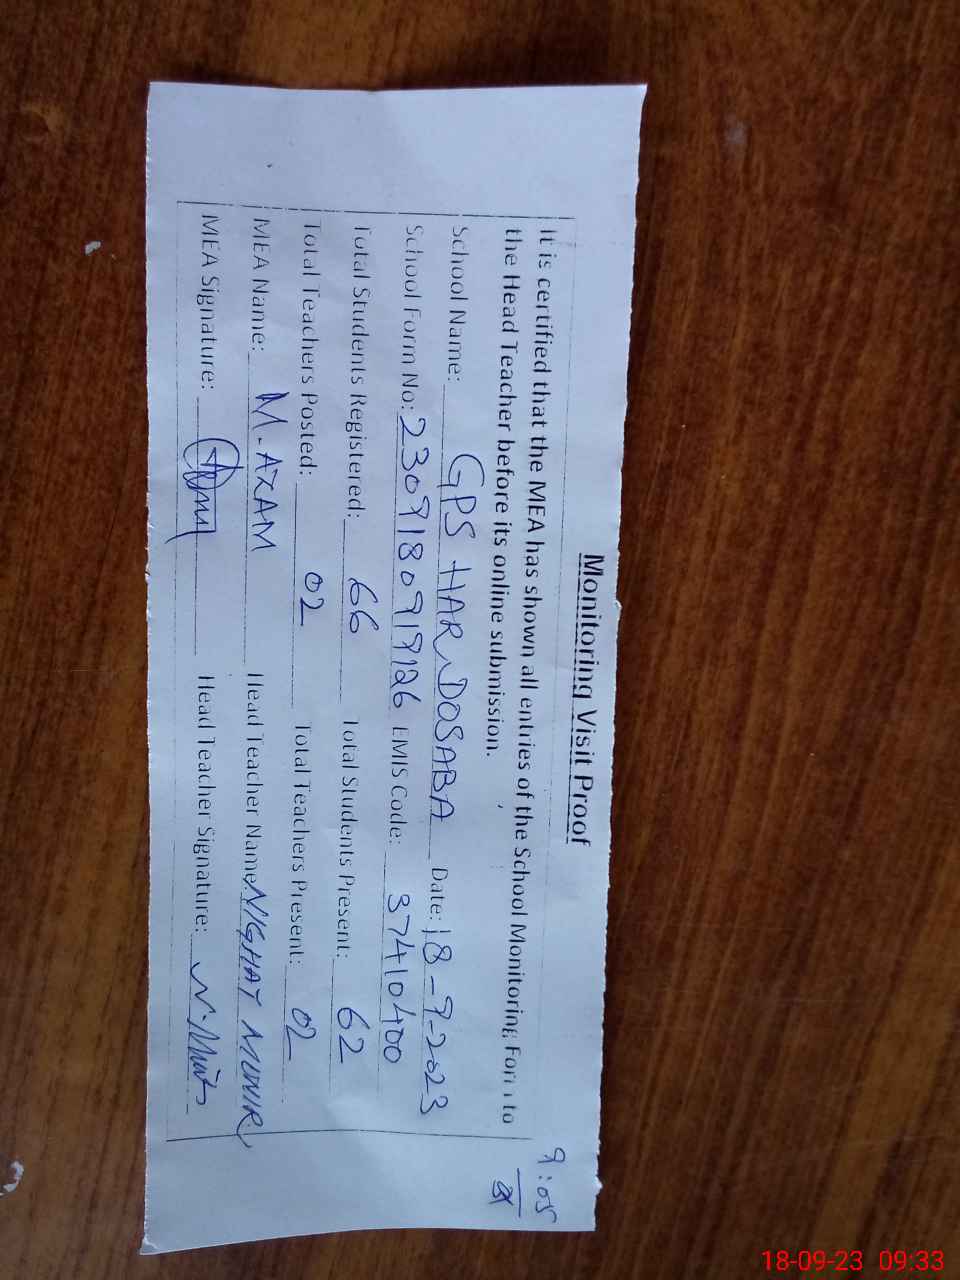 Monitoring Visit Proof
It is certified that the MEA has shown all entries of the School Monitoring Form to
the Head Teacher before its online submission.
School Name: GPS HAR DOSABA Date: 18-9-2023
School Form No: 2309180919126 EMIS Code: 37410400
Total Students Registered: 66 Total Students Present: 62
Total Teachers Posted: 02 Total Teachers Present: 02
MEA Name: M. AZAM Head Teacher Name NIGHAT MUNIR
MEA Signature: Head Teacher Signature:
9:05
18-09-23 09:33